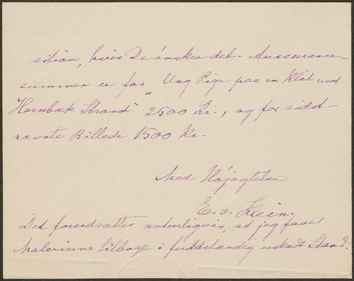 sition, hvis De ønsker det. Assurance
summen er for "Ung Pige paa en Klit ved
Hornbæk Strand" 2500 Kr., og for sidst
nævnte Billede 1500 Kr.
Med Højagtelse
E. v.
Det forudsættes naturligvis, at jeg faaer
Malerierne tilbage i fuldstændig uskadt Stand.